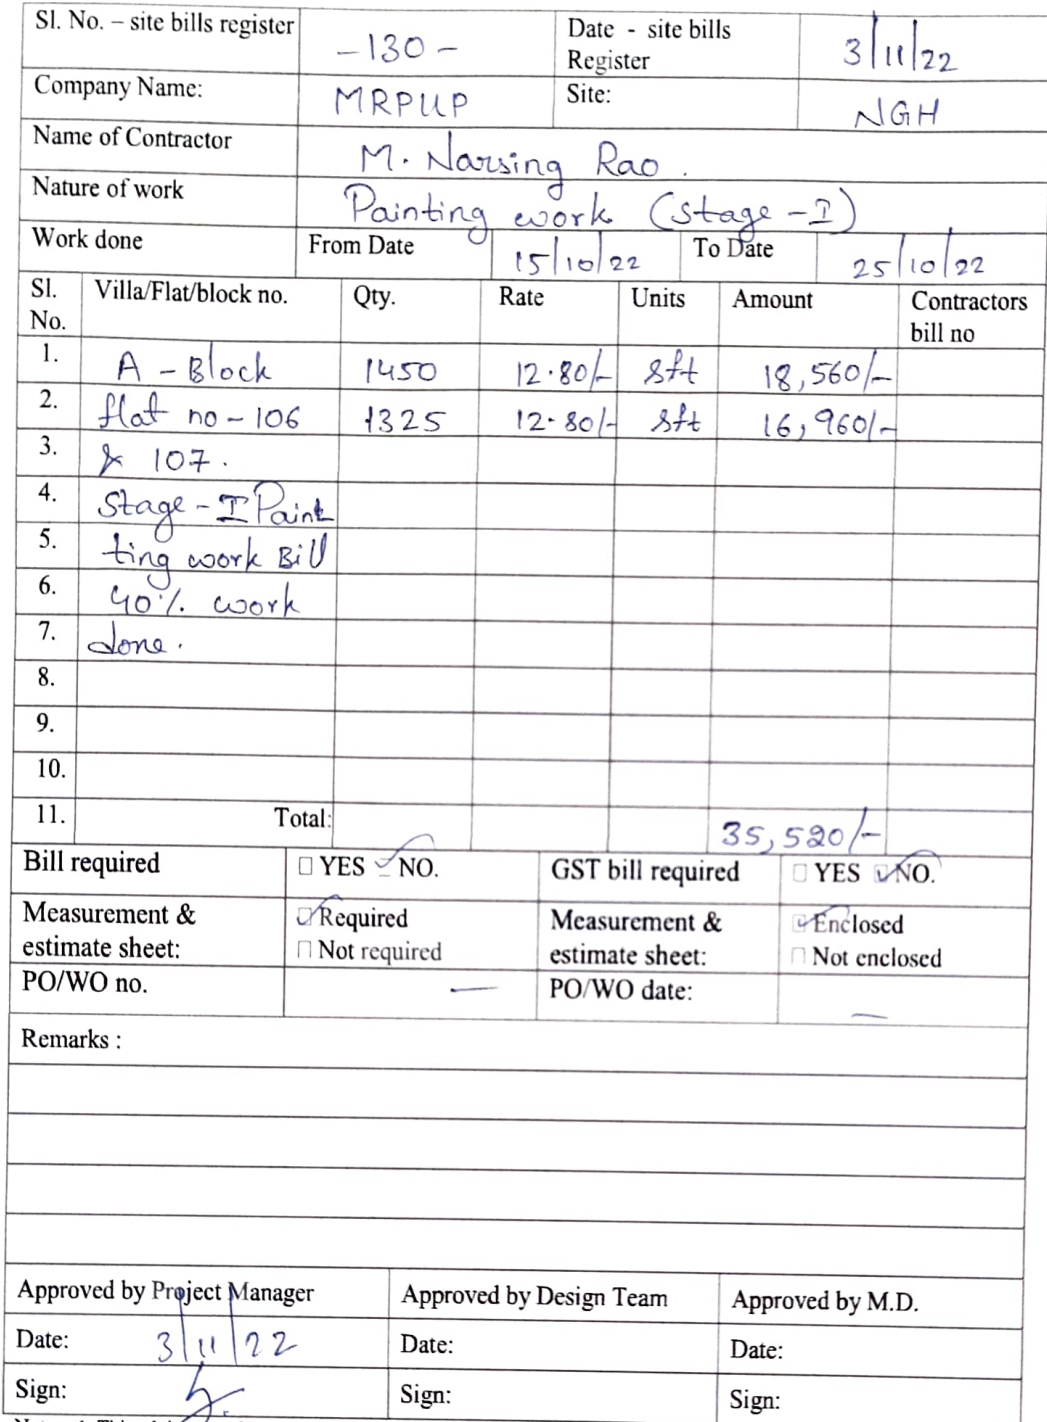 Sl. No. – site bills register -130- Date - site bills Register 3/11/22
Company Name: MRPUP Site: NGH
Name of Contractor M. Narsing Rao.
Nature of work Painting work (stage-I)
Work done From Date 15/10/22 To Date 25/10/22
Sl. No. Villa/Flat/block no. Qty. Rate Units Amount Contractors bill no
1. A - Block 1450 12.80/- sft 18,560/-
2. flat no - 106 1325 12.80/- sft 16,960/-
3. & 107.
4. Stage - I Paint
5. ting work Bill
6. 40% work
7. done.
8.
9.
10.
11. Total: 35,520/-
Bill required YES NO. GST bill required YES NO.
Measurement & estimate sheet: Required Not required Measurement & estimate sheet: Enclosed Not enclosed
PO/WO no. — PO/WO date: —
Remarks :
Approved by Project Manager Approved by Design Team Approved by M.D.
Date: 3/11/22 Date: Date:
Sign: Sign: Sign: